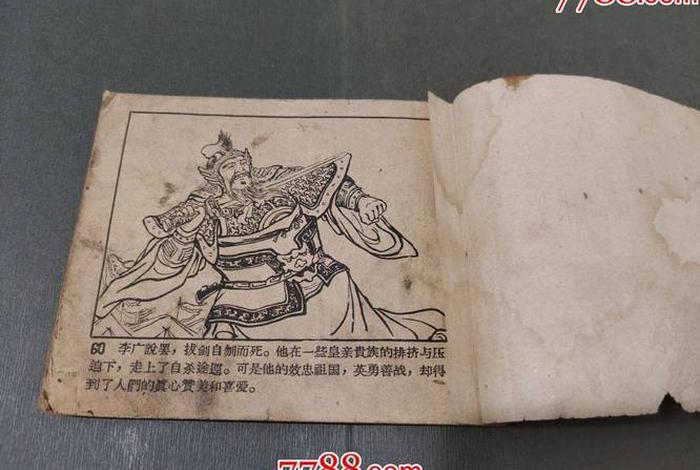 7788.com
60 李广說罢，拔剑自刎而死。他在一些皇亲貴族的排挤与压
迫下，走上了自杀途迳。可是他的效忠祖国，英勇善战，却得
到了人們的眞心赞美和喜爱。
7788.com